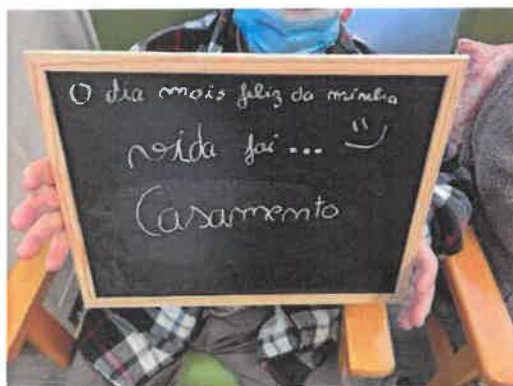 O dia mais feliz da minha
vida foi...
Casamento